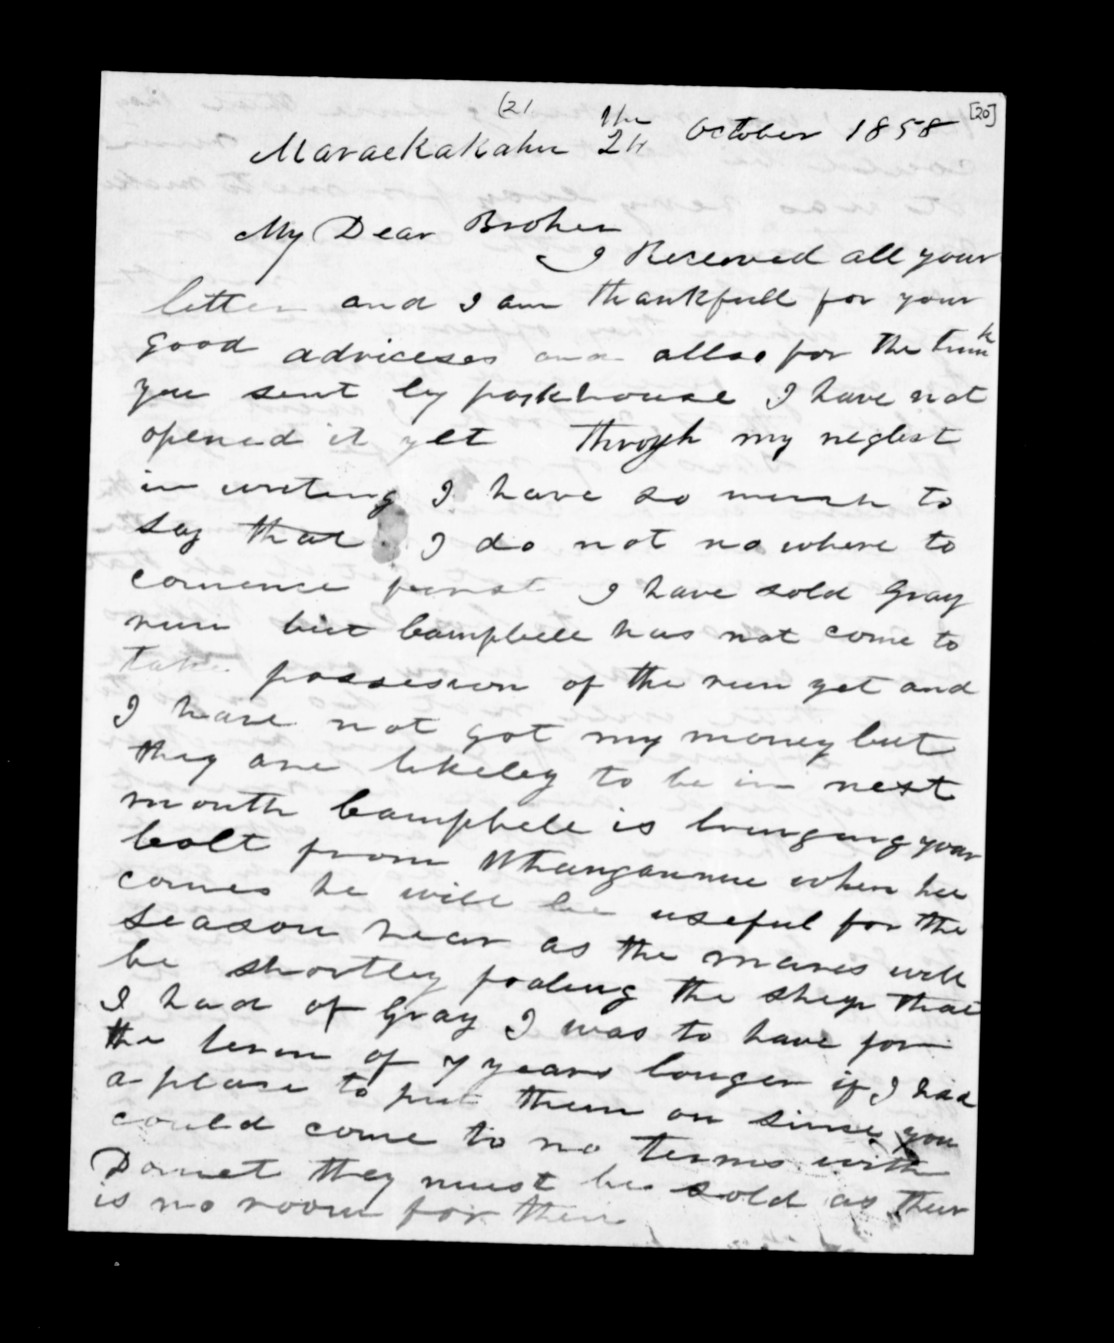 (21
[20]
Maraekakahu 24 the October 1858
My Dear Brother
I Received all your
letter and I am thankfull for your
good adviceses and allso for the trunk
you sent by parkhouse I have not
opened it yet throgh my neglest
in writing I have so much to
say that I do not no where to
comence furst I have sold Gray
run but Campbell has not come to
take possession of the run yet and
I have not got my money but
they are likeley to be in next
month Campbell is bringing your
colt from Whanganue when he
comes he will be useful for the
season hear as the mares will
be shortley foaling the sheep that
I had of Gray I was to have for
the term of 7 years longer if I had
a place to put them on since you
could come to no terms with
Domet they must be sold as ther
is no room for them